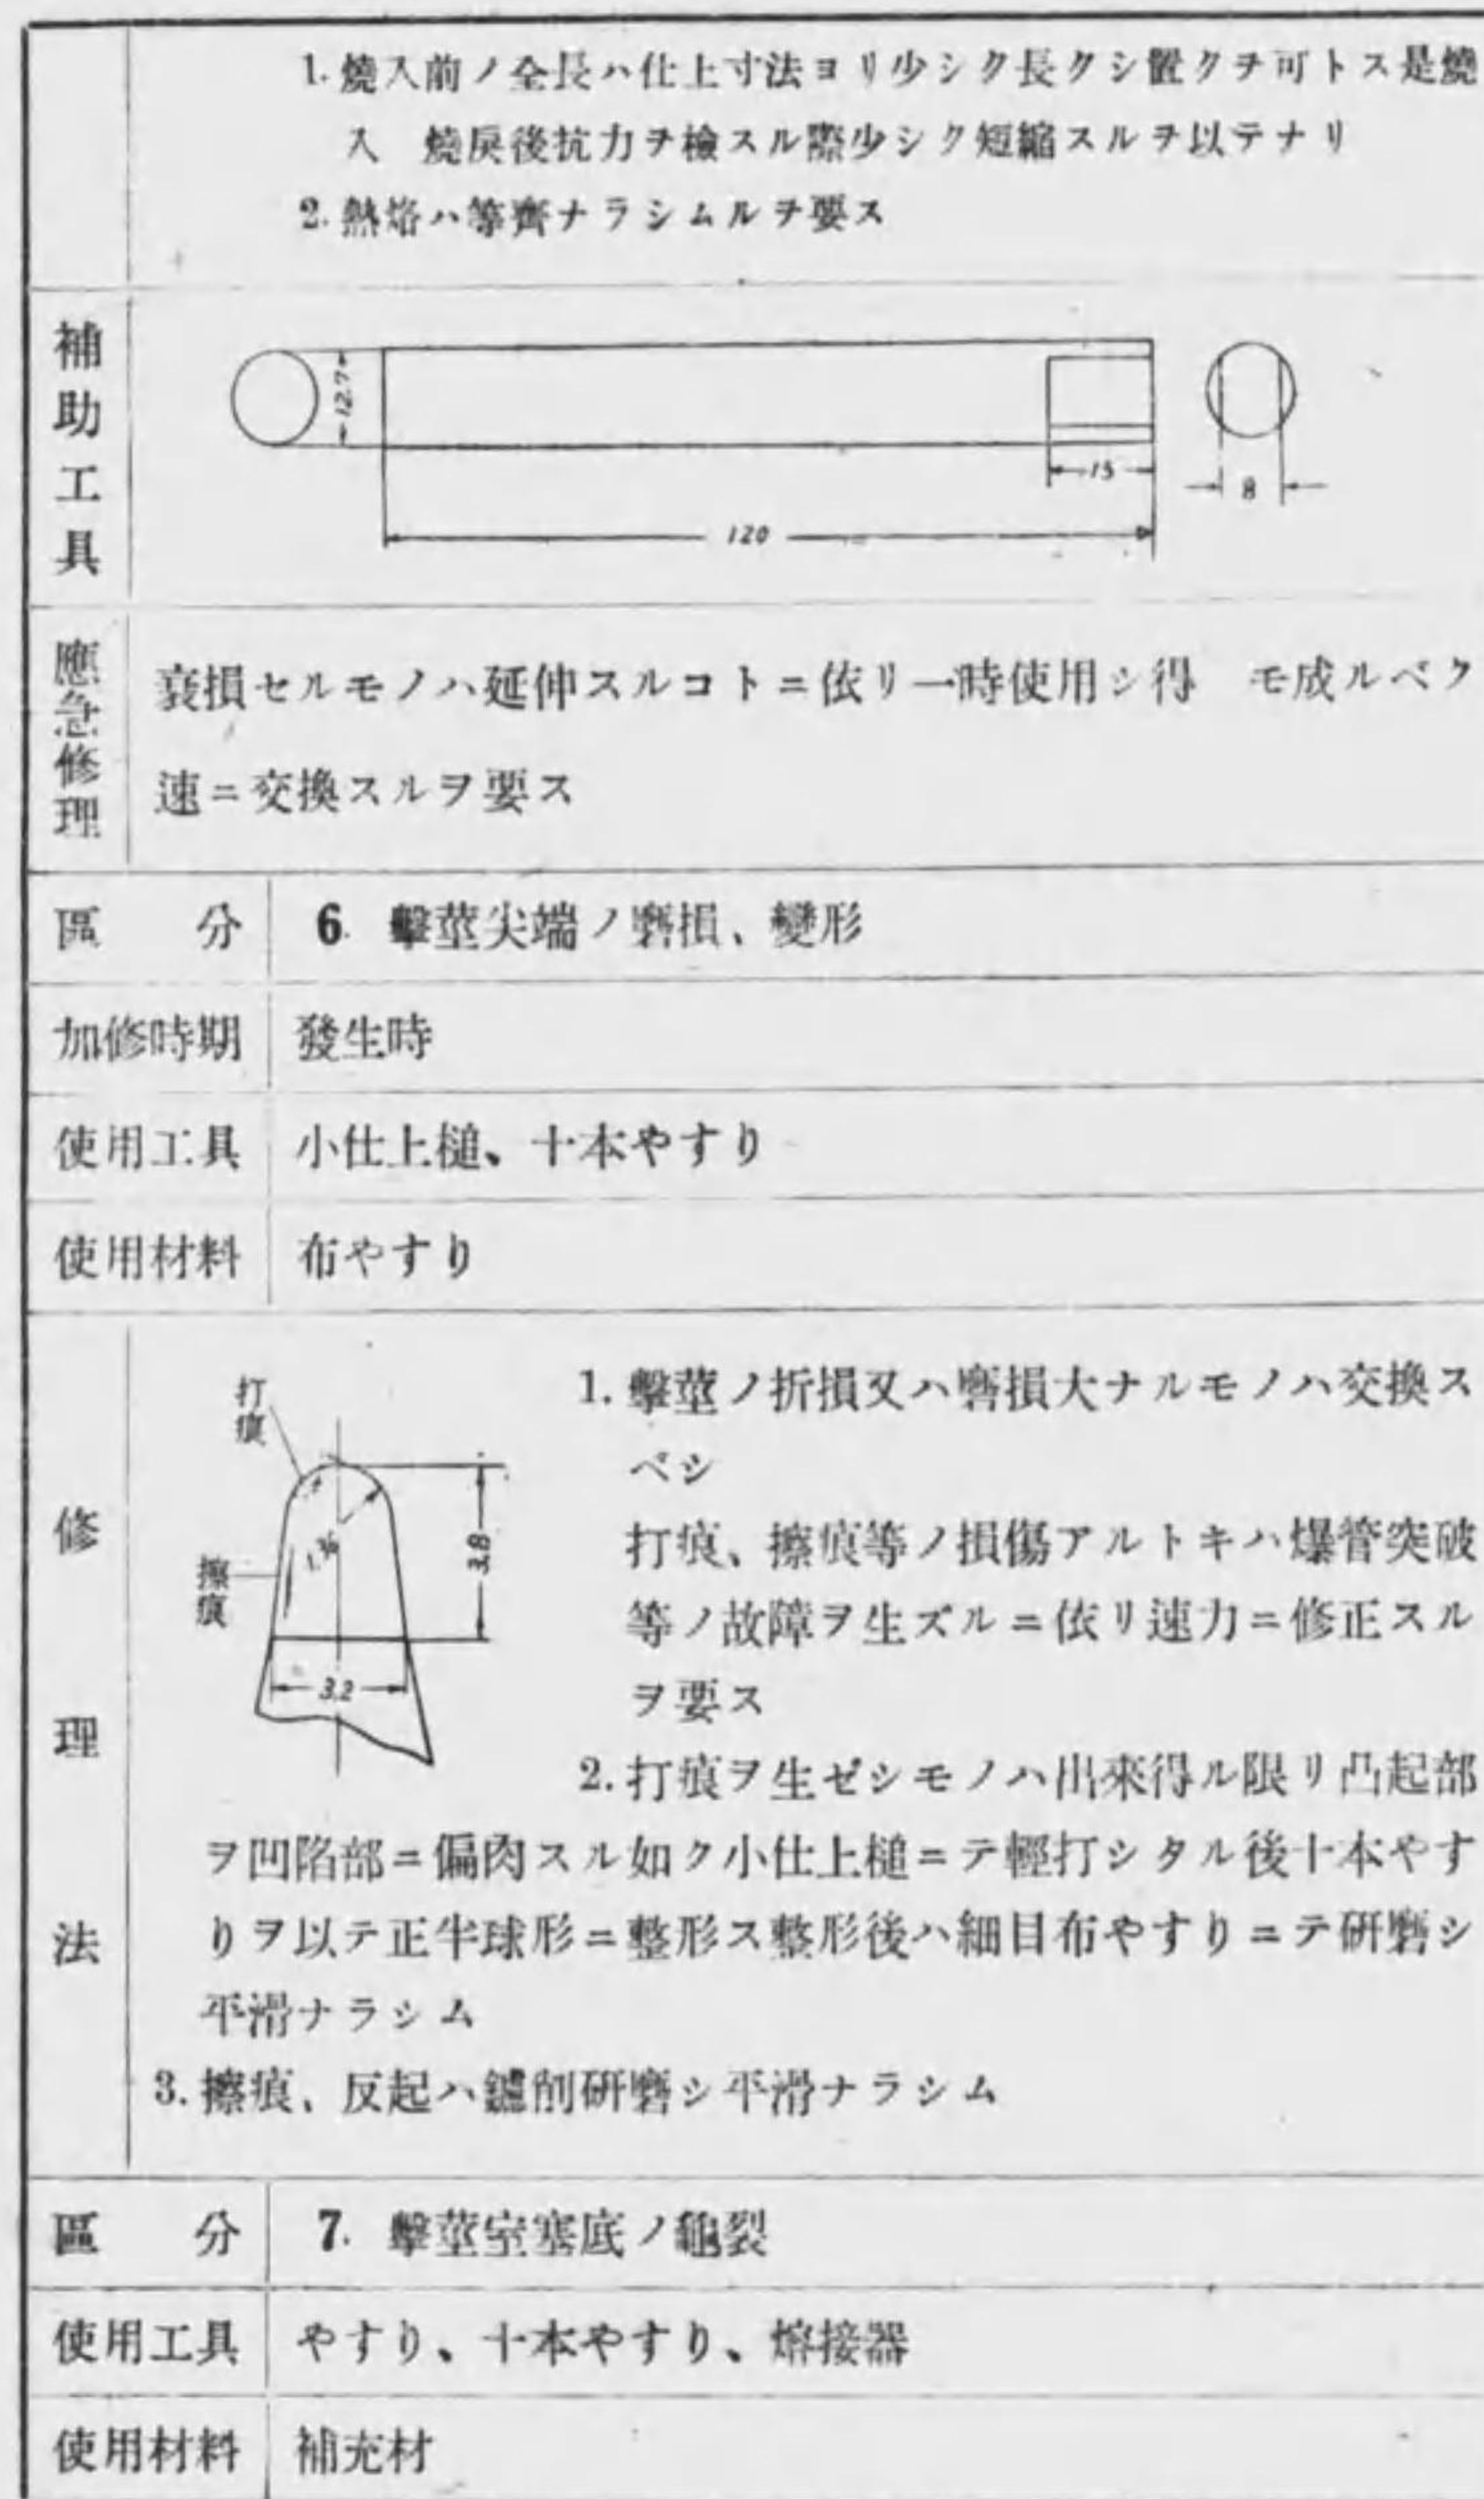 1. 燒入前ノ全長ハ仕上寸法ヨリ少シク長クシ置クヲ可トス是燒
入 燒戾後抗力ヲ檢スル際少シク短縮スルヲ以テナリ
2. 熱烙ハ等齊ナラシムルヲ要ス
補助工具
12.7
15
8
120
應急修理
衰損セルモノハ延伸スルコトニ依リ一時使用シ得 モ成ルベク
速ニ交換スルヲ要ス
區分 6. 擊莖尖端ノ磨損、變形
加修時期 發生時
使用工具 小仕上槌、十本やすり
使用材料 布やすり
修理法
打痕
擦痕
3.8
3.2
1. 擊莖ノ折損又ハ磨損大ナルモノハ交換ス
ベシ
打痕、擦痕等ノ損傷アルトキハ爆管突破
等ノ故障ヲ生ズルニ依リ速カニ修正スル
ヲ要ス
2. 打痕ヲ生ゼシモノハ出來得ル限リ凸起部
ヲ凹陷部ニ偏肉スル如ク小仕上槌ニテ輕打シタル後十本やす
りヲ以テ正半球形ニ整形ス整形後ハ細目布やすりニテ研磨シ
平滑ナラシム
3. 擦痕、反起ハ鑢削研磨シ平滑ナラシム
區分 7. 擊莖室塞底ノ龜裂
使用工具 やすり、十本やすり、熔接器
使用材料 補充材